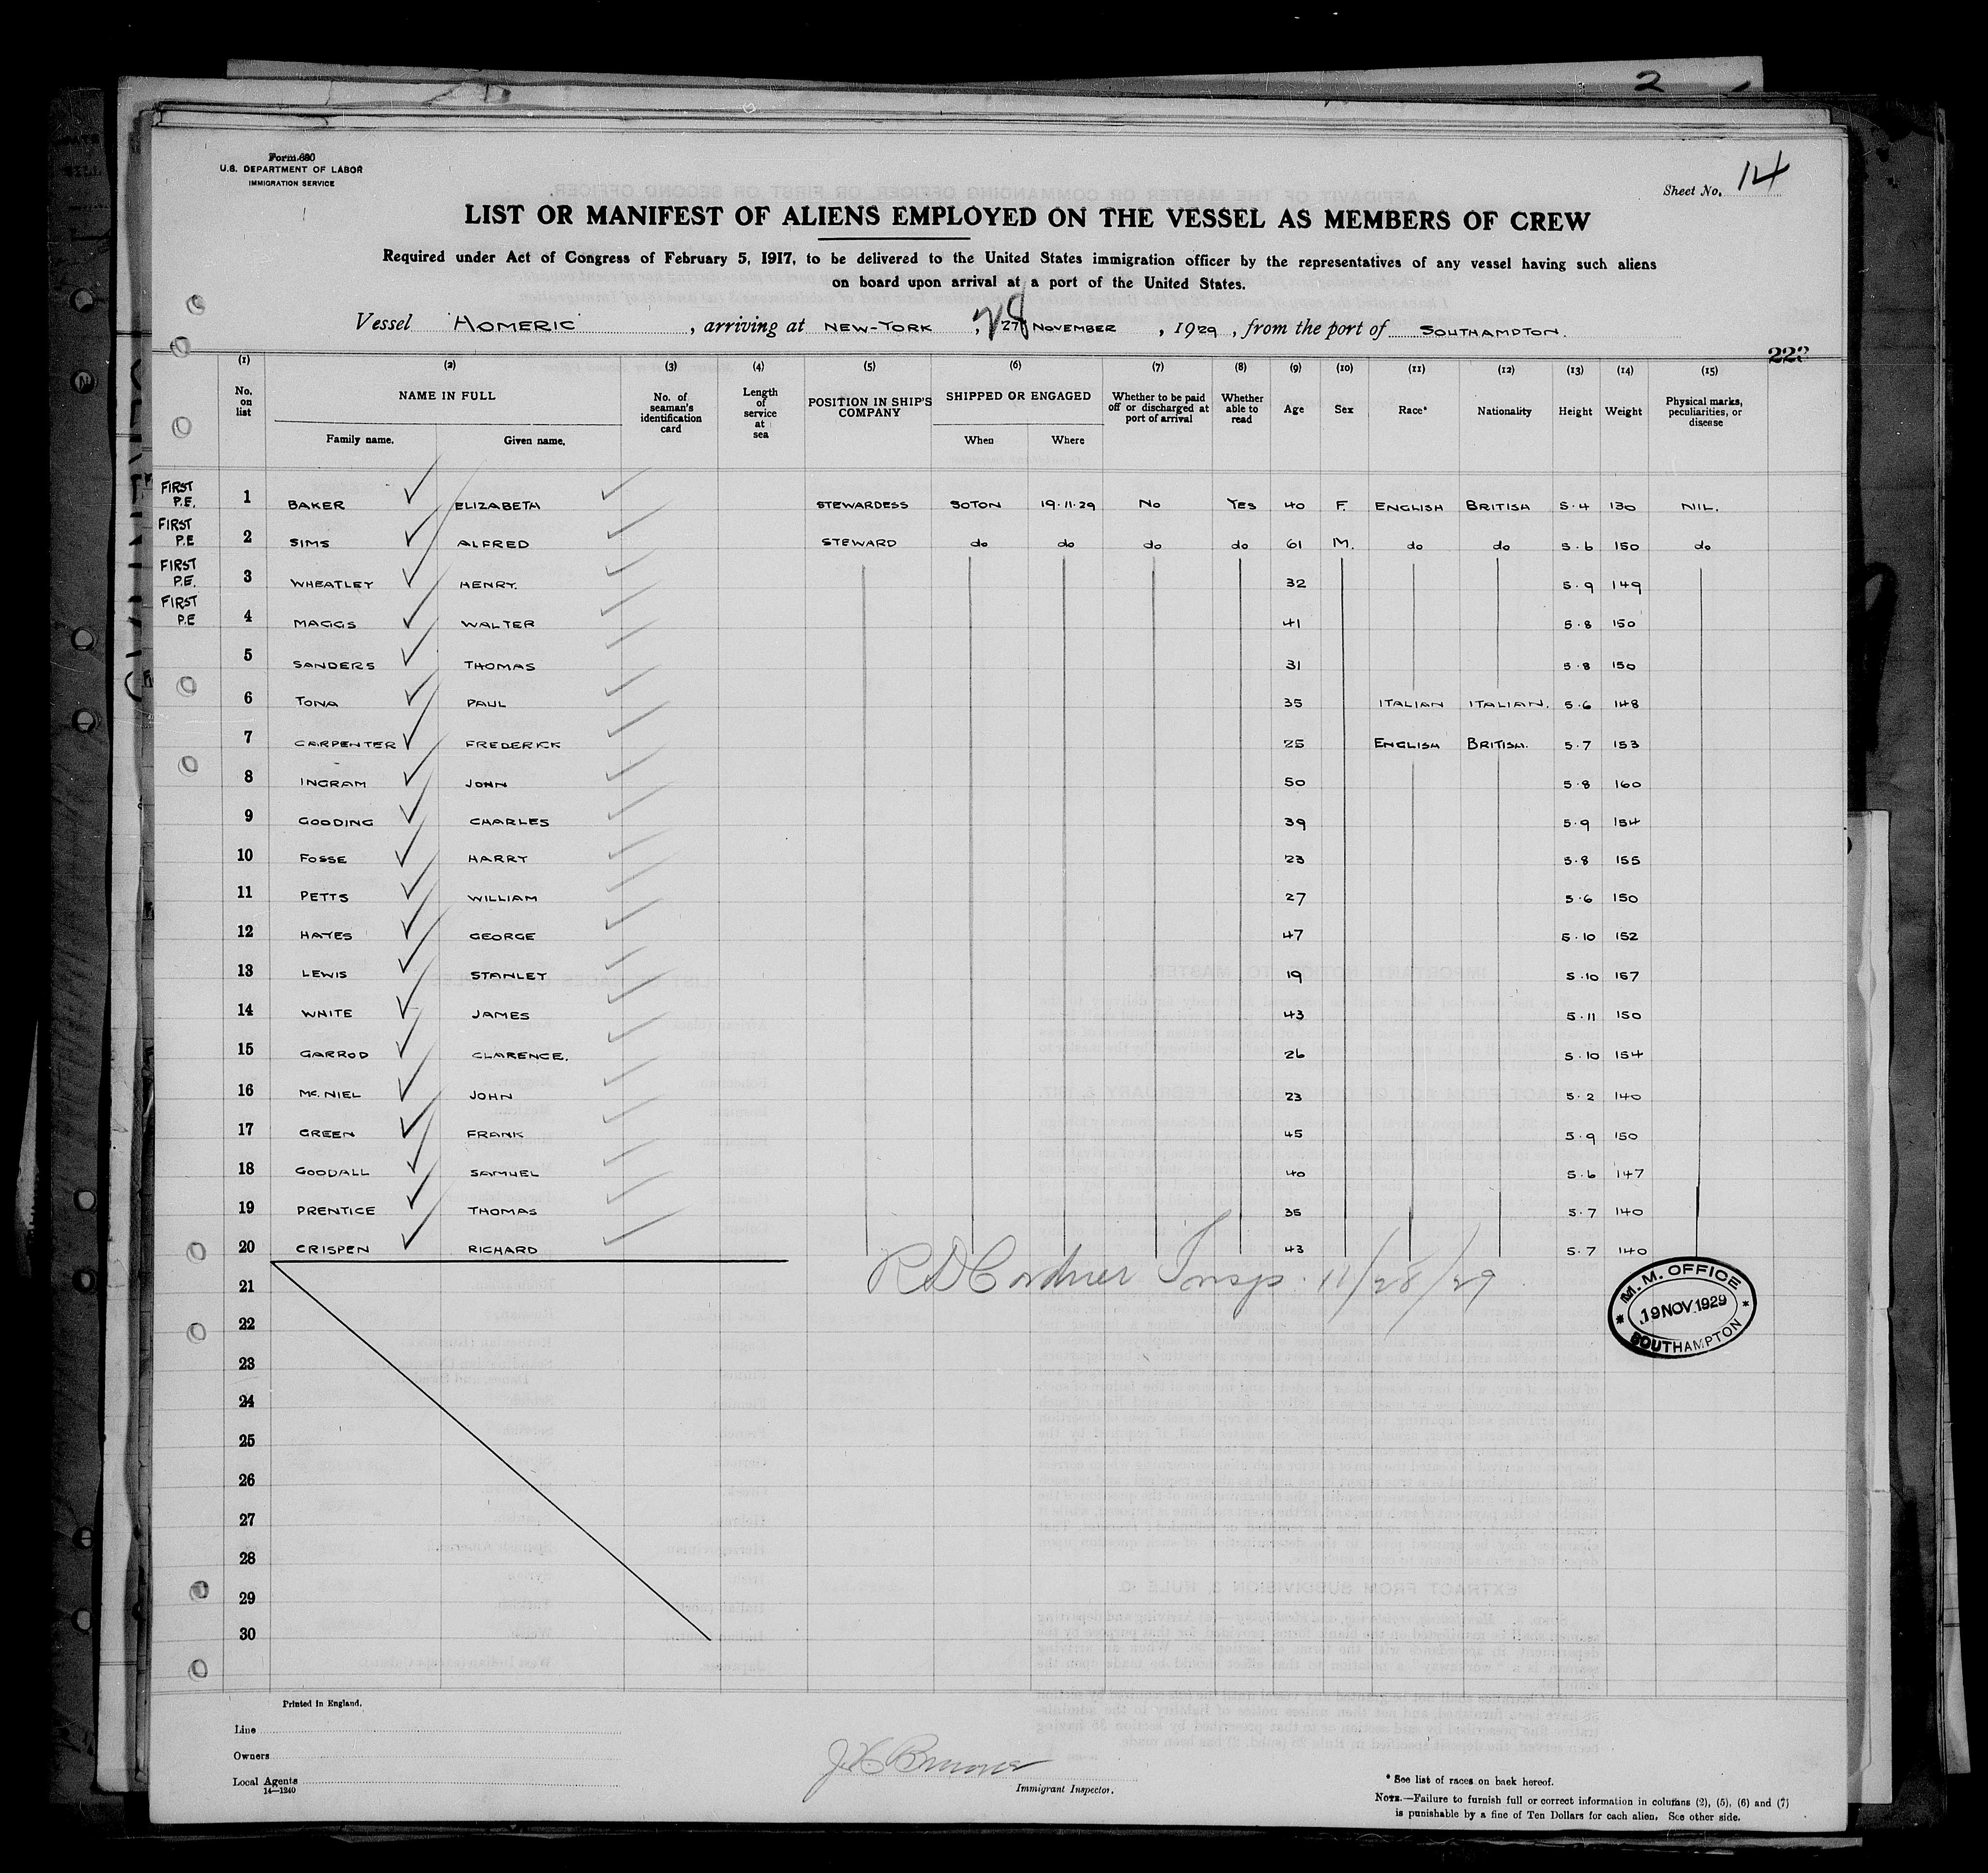 2
Form 680
U.S. DEPARTMENT OF LABOR
IMMIGRATION SERVICE
Sheet No. 14
LIST OR MANIFEST OF ALIENS EMPLOYED ON THE VESSEL AS MEMBERS OF CREW
Required under Act of Congress of February 5, 1917, to be delivered to the United States immigration officer by the representatives of any vessel having such aliens
on board upon arrival at a port of the United States.
Vessel HOMERIC , arriving at NEW-YORK , 28 27 NOVEMBER , 1929 , from the port of SOUTHAMPTON.
222
(1) (2) (3) (4) (5) (6) (7) (8) (9) (10) (11) (12) (13) (14) (15)
No. on list NAME IN FULL Family name. Given name. No. of seaman's identification card Length of service at sea POSITION IN SHIP'S COMPANY SHIPPED OR ENGAGED When Where Whether to be paid off or discharged at port of arrival Whether able to read Age Sex Race* Nationality Height Weight Physical marks, peculiarities, or disease
FIRST P.E. 1 BAKER ELIZABETH STEWARDESS SOTON 19.11.29 No Yes 40 F. ENGLISH BRITISH 5.4 130 NIL.
FIRST P.E 2 SIMS ALFRED STEWARD do do do do 61 M. do do 5.6 150 do
FIRST P.E. 3 WHEATLEY HENRY. 32 5.9 149
FIRST P.E 4 MAGGS WALTER 41 5.8 150
5 SANDERS THOMAS 31 5.8 150
6 TONA PAUL 35 ITALIAN ITALIAN. 5.6 148
7 CARPENTER FREDERICK 25 ENGLISH BRITISH. 5.7 153
8 INGRAM JOHN 50 5.8 160
9 GOODING CHARLES 39 5.9 154
10 FOSSE HARRY 23 5.8 155
11 PETTS WILLIAM 27 5.6 150
12 HAYES GEORGE 47 5.10 152
13 LEWIS STANLEY 19 5.10 157
14 WHITE JAMES 43 5.11 150
15 GARROD CLARENCE. 26 5.10 154
16 Mc.NIEL JOHN 23 5.2 140
17 GREEN FRANK 45 5.9 150
18 GOODALL SAMUEL 40 5.6 147
19 PRENTICE THOMAS 35 5.7 140
20 CRISPEN RICHARD 43 5.7 140
R D Cordner Insp. 11/28/29
M. M. OFFICE
19 NOV. 1929
SOUTHAMPTON
21
22
23
24
25
26
27
28
29
30
Printed in England.
Line
Owners
Local Agents
14—1240
Immigrant Inspector.
* See list of races on back hereof.
NOTE.—Failure to furnish full or correct information in columns (2), (5), (6) and (7)
is punishable by a fine of Ten Dollars for each alien. See other side.